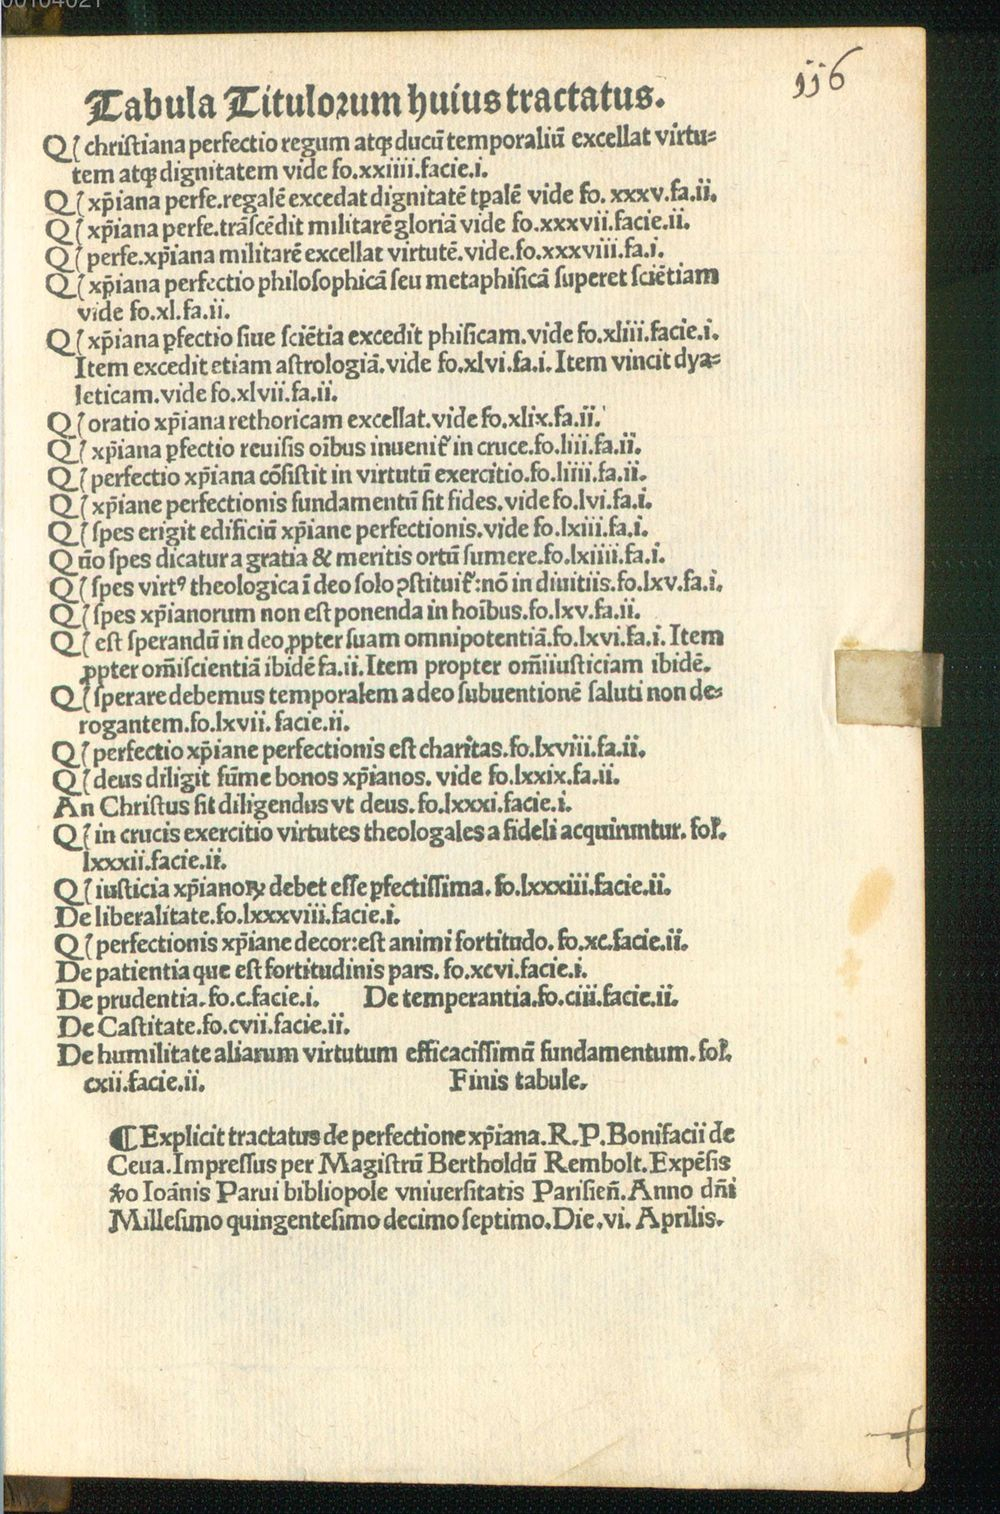 00104021
116
Tabula Titulorum huius tractatus.
Qꝭ christiana perfectio regum atqꝫ ducū temporaliū excellat virtu⸗
tem atqꝫ dignitatem vide fo.xxiiii.facie.i.
Qꝭ xp̄iana perfe.regalē excedat dignitatē tp̄alē vide fo. xxxv.fa.ii.
Qꝭ xp̄iana perfe.trāscēdit militarē gloriā vide fo.xxxvii.facie.ii.
Qꝭ perfe.xp̄iana militarē excellat virtutē.vide.fo.xxxviii.fa.i.
Qꝭ xp̄iana perfectio philosophicā seu metaphisicā superet sciētiam
vide fo.xl.fa.ii.
Qꝭ xp̄iana ꝑfectio siue sciētia excedit phisicam.vide fo.xliii.facie.i.
Item excedit etiam astrologiā.vide fo.xlvi.fa.i.Item vincit dya⸗
leticam.vide fo.xlvii.fa.ii.
Qꝭ oratio xp̄iana rethoricam excellat.vide fo.xlix.fa.ii.
Qꝭ xp̄iana ꝑfectio reuisis oībus inuenit᷑ in cruce.fo.liii.fa.ii.
Qꝭ perfectio xp̄iana cōsistit in virtutū exercitio.fo.liiii.fa.ii.
Qꝭ xp̄iane perfectionis fundamentū sit fides.vide fo.lvi.fa.i.
Qꝭ spes erigit edificiū xp̄iane perfectionis.vide fo.lxiii.fa.i.
Q nō spes dicatur a gratia & meritis ortū sumere.fo.lxiiii.fa.i.
Qꝭ spes virtꝰ theologica ī deo solo ꝯstituit᷑:nō in diuitiis.fo.lxv.fa.i.
Qꝭ spes xp̄ianorum non est ponenda in hoībus.fo.lxv.fa.ii.
Qꝭ est sperandū in deo ꝓpter suam omnipotentiā.fo.lxvi.fa.i.Item
ꝓpter om̄iscientiā ibidē fa.ii.Item propter om̄iiusticiam ibidē.
Qꝭ sperare debemus temporalem a deo subuentionē saluti non de⸗
rogantem.fo.lxvii.facie.ii.
Qꝭ perfectio xp̄iane perfectionis est charitas.fo.lxviii.fa.ii.
Qꝭ deus diligit sūme bonos xp̄ianos. vide fo.lxxix.fa.ii.
An Christus sit diligendus vt deus.fo.lxxxi.facie.i.
Qꝭ in crucis exercitio virtutes theologales a fideli acquiruntur. fol.
lxxxii.facie.ii.
Qꝭ iusticia xp̄ianoꝝ debet esse ꝑfectissima. fo.lxxxiii.facie.ii.
De liberalitate.fo.lxxxviii.facie.i.
Qꝭ perfectionis xp̄iane decor:est animi fortitudo. fo.xc.facie.ii.
De patientia que est fortitudinis pars. fo.xcvi.facie.i.
De prudentia.fo.c.facie.i. De temperantia.fo.ciii.facie.ii.
De Castitate.fo.cvii.facie.ii.
De humilitate aliarum virtutum efficacissimū fundamentum. fol.
cxii.facie.ii. Finis tabule.
¶ Explicit tractatus de perfectione xp̄iana.R.P.Bonifacii de
Ceua.Impressus per Magistrū Bertholdū Rembolt.Expēsis
ꝟo Ioānis Parui bibliopole vniuersitatis Parisien̄.Anno dn̄i
Millesimo quingentesimo decimo septimo.Die.vi. Aprilis.